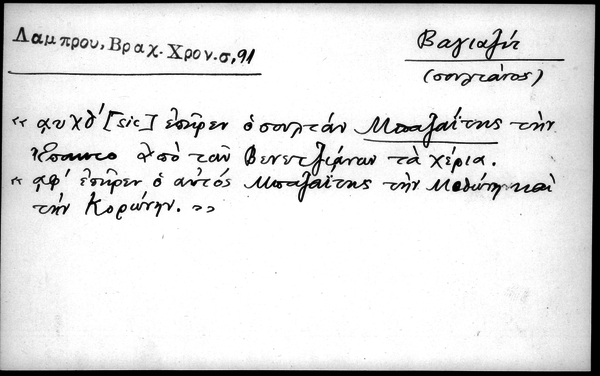 Λαμπρου, Βραχ. Χρον. σ, 91
Βαγιαζίτ
(σουλτάνος)
« ᾳυχδ´ [sic] ἐπῆρεν ὁ σουλτάν Μπαζαΐτης τὴν
Ἔπαντο ἀπὸ τῶν Βενετζιάνων τὰ χέρια.
« ᾳφ´ ἐπῆρεν ὁ αὐτός Μπαζαΐτης τὴν Μεθώνην καὶ
τὴν Κορώνην. »